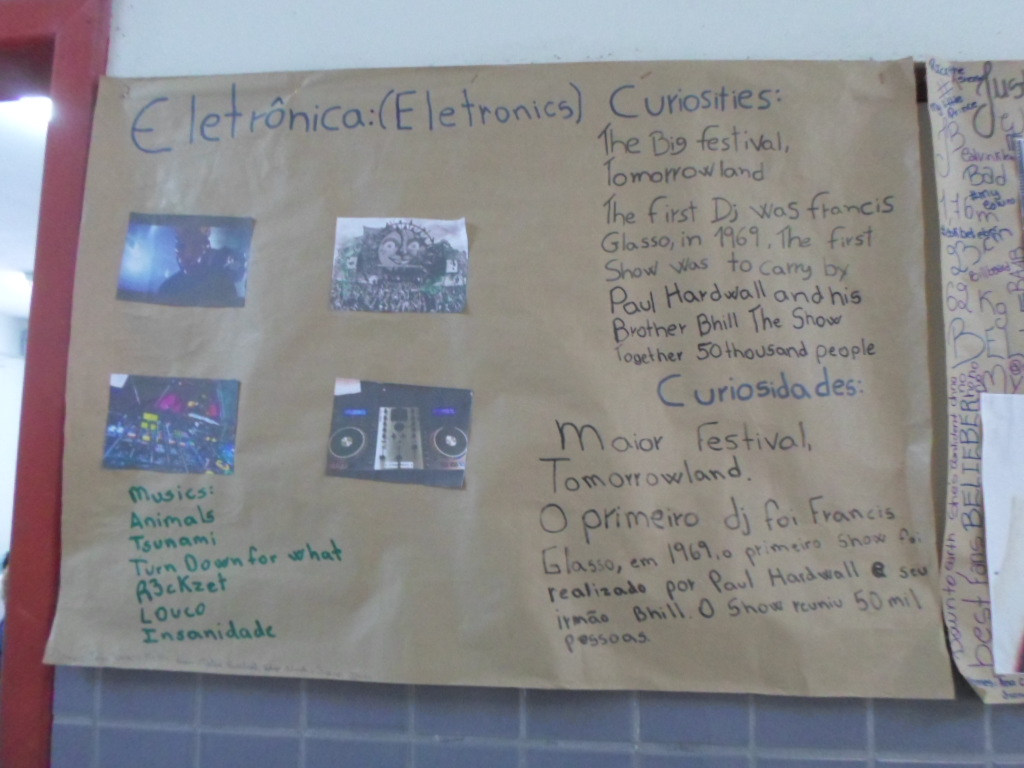 Eletrônica:(Eletronics)
Curiosities:
The Big festival,
Tomorrowland
The first Dj was francis
Glasso, in 1969. The first
Show was to carry by
Paul Hardwall and his
Brother Bhill The Show
Together 50 thousand people
Curiosidades:
Maior Festival,
Tomorrowland.
O primeiro dj foi Francis
Glasso, em 1969, o primeiro show foi
realizado por Paul Hardwall e seu
irmão Bhill. O Show reuniu 50 mil
pessoas.
Musics:
Animals
Tsunami
Turn Down for what
R3ckzet
Louco
Insanidade
Just
Bad
BELIEBER
best fans
Down to earth